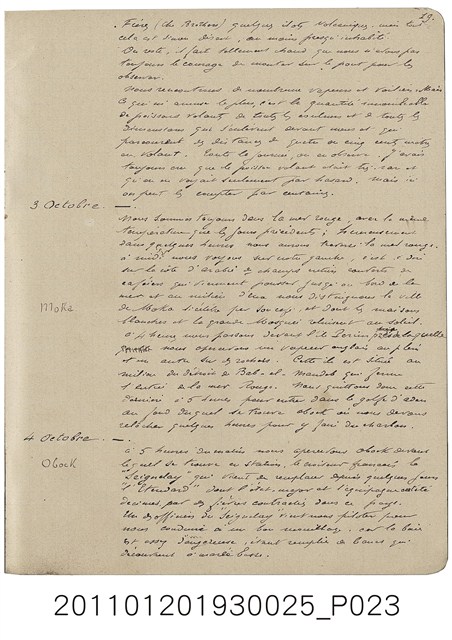 29.
Frères (the Brothers) quelques ilots volcaniques. mais tout
cela est sinon désert, au moins presqu'inhabité.
Du reste, il fait tellement chaud que nous n'avons pas
toujours le courage de monter sur le pont pour les
observer.
Nous rencontrons de nombreux vapeurs et voiliers. Mais
ce qui m'amuse le plus, c'est la quantité innombrable
de poissons volants de toutes les couleurs et de toutes les
dimensions qui s'enlèvent devant nous et qui
parcourent des distances de quatre ou cinq cents mètres
en volant. Toute la journée, on en observe. J'avais
toujours cru que le poisson volant était très rare et
qu'on en voyait seulement par hasard, mais ici
on peut les compter par centaines.
3 Octobre. —.
Nous sommes toujours dans la mer rouge, avec la même
température que les jours précédents;
dans quelques heures nous aurons traversé la mer rouge.
à midi, nous voyons sur notre gauche, c'est à dire
sur la côte d'arabie de champs entiers couverts de
caféiers qui viennent pousser jusqu'au bord de la
mer et au milieu d'eux nous distinguons la ville
Moka
de Moka si célèbre par son café et dont les maisons
blanches et la grande Mosquée reluisent au soleil.
à heures nous passons devant l'île Périm près de laquelle
nous apercevons un vapeur anglais
et un autre sur les rochers. Cette île est située au
milieu du détroit de Bab-el-Mandeb qui ferme
l'entrée de la mer Rouge. Nous quittons donc cette
dernière à 5 heures pour entrer dans le golfe d'aden
au fond duquel se trouve obock où nous devons
relâcher quelques heures pour y faire du charbon.
4 Octobre —.
à 5 heures du matin nous apercevons Obock devant
Obock
lequel se trouve en station, le croiseur français le
"Seignelay" qui vient de remplacer depuis quelques jours
l'"Etendard" dont l'état-major et l'équipage ont été
décimés par les fièvres contractées dans ce pays.
Un des officiers du Seignelay vient nous piloter pour
nous conduire à un bon mouillage, car la baie
est assez dangereuse, étant remplie de bancs qui
découvrent à marée basse.
201101201930025_P023